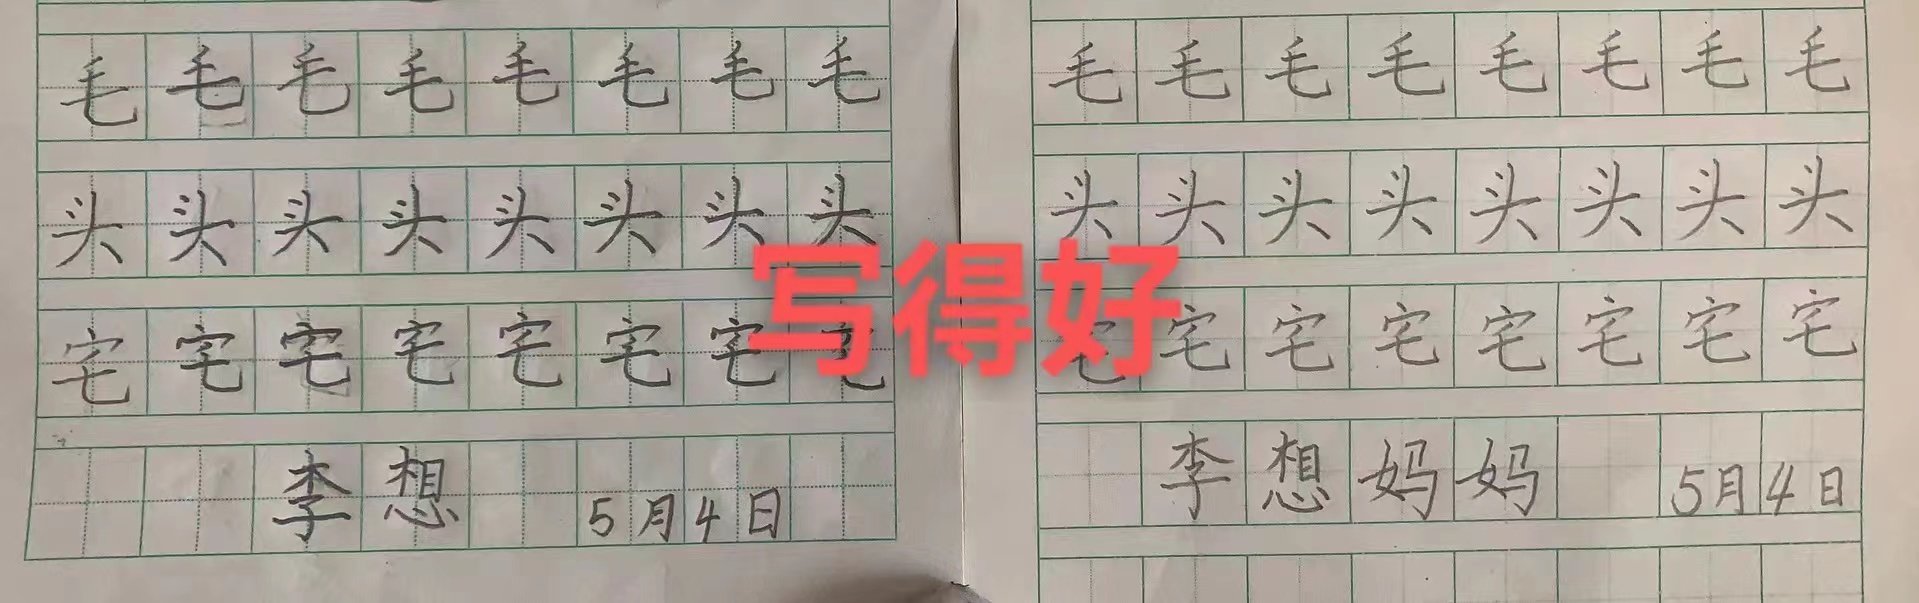 毛毛毛毛毛毛毛毛
头头头头头头头头
宅宅宅宅宅宅宅宅
李想 5月4日
毛毛毛毛毛毛毛毛
头头头头头头头头
宅宅宅宅宅宅宅宅
李想妈妈 5月4日
写得好